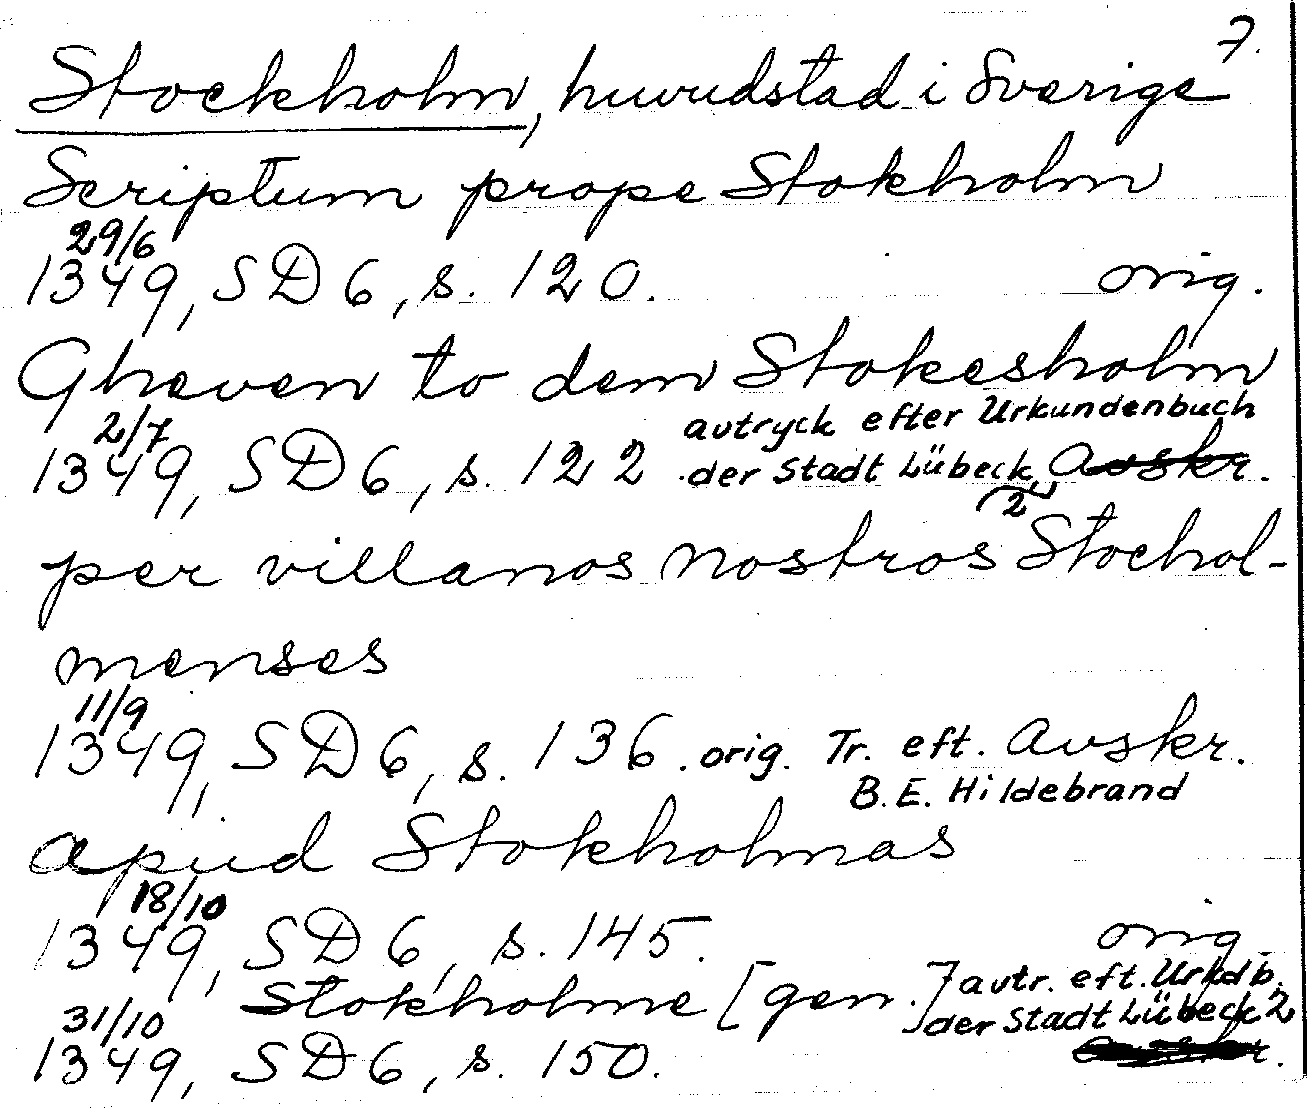 7.
Stockholm, huvudstad i Sverige
Scriptum prope Stokholm
29/6
1349, SD 6, s. 120. orig.
Gheven to dem Stokesholm
2/7 avtryck efter Urkundenbuch
1349, SD 6, s. 122 der Stadt Lübeck, Avskr.
2
per villanos nostros Stochol-
menses
11/9
1349, SD 6, s. 136. orig. Tr. eft. Avskr.
B. E. Hildebrand
apud Stokholmas
18/10
1349, SD 6, s. 145. orig.
Stokholme [gen.] avtr. eft. Urkdb.
31/10 der Stadt Lübeck 2
1349, SD 6, s. 150.